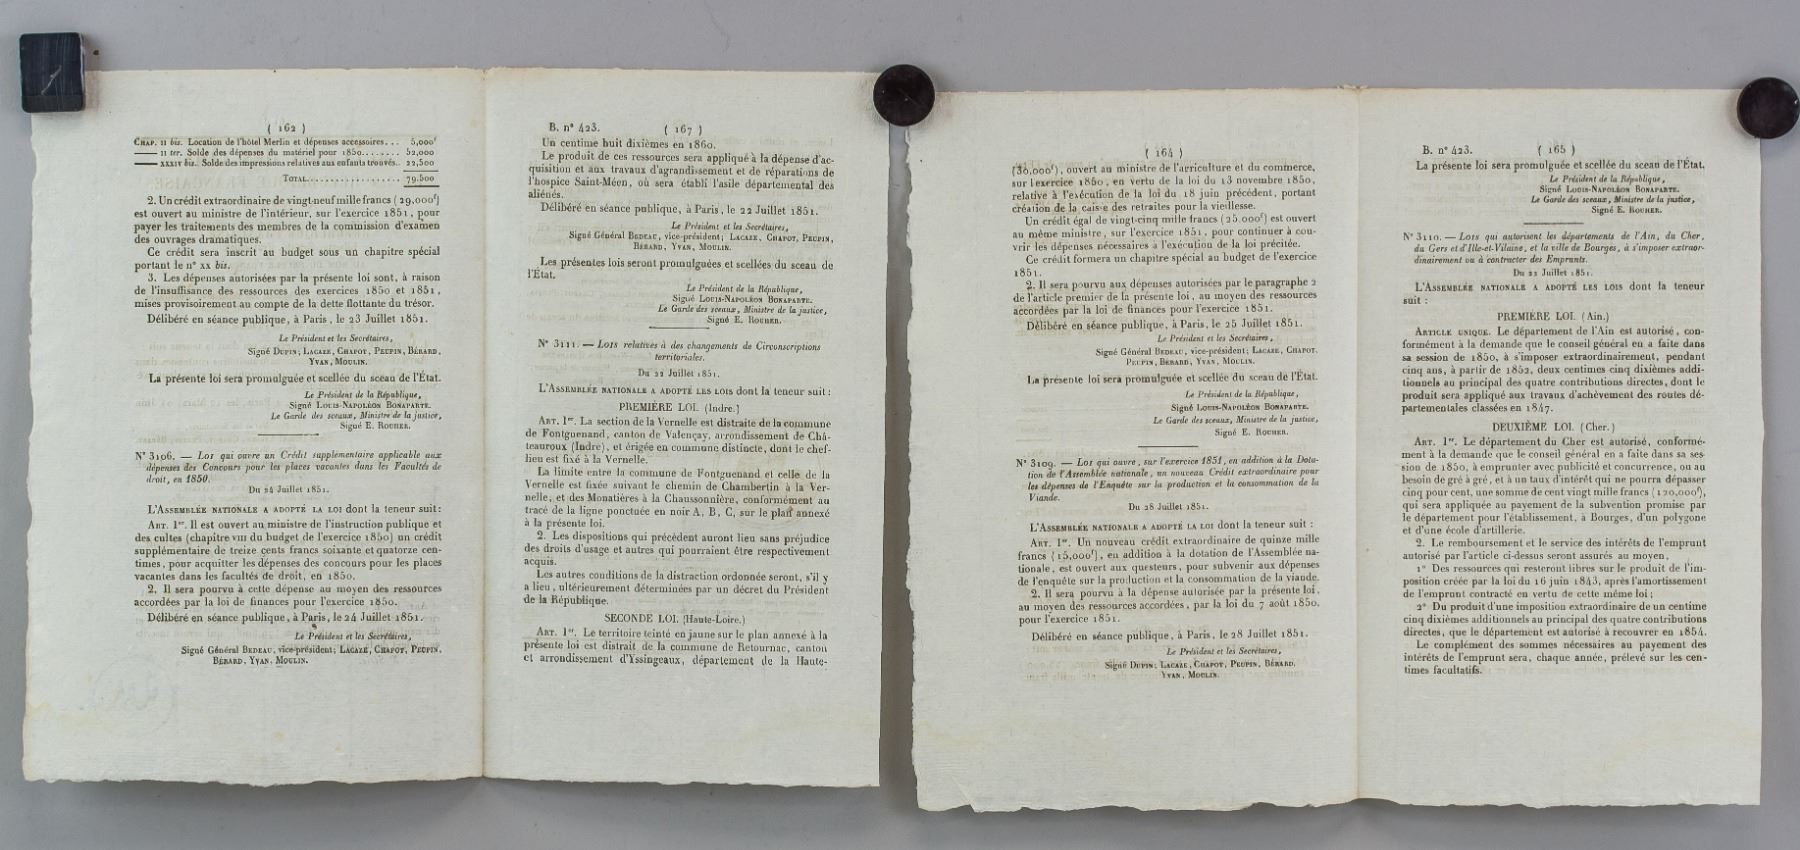 ( 162 )
CHAP. II bis. Location de l'hôtel Merlin et dépenses accessoires... 5,000f
—— II ter. Solde des dépenses du matériel pour 1850........ 52,000
—— XXXIV bis. Solde des impressions relatives aux enfants trouvés.. 22,500
TOTAL.................. 79,500
2. Un crédit extraordinaire de vingt-neuf mille francs (29,000f)
est ouvert au ministre de l'intérieur, sur l'exercice 1851, pour
payer les traitements des membres de la commission d'examen
des ouvrages dramatiques.
Ce crédit sera inscrit au budget sous un chapitre spécial
portant le n° XX bis.
3. Les dépenses autorisées par la présente loi sont, à raison
de l'insuffisance des ressources des exercices 1850 et 1851,
mises provisoirement au compte de la dette flottante du trésor.
Délibéré en séance publique, à Paris, le 23 Juillet 1851.
Le Président et les Secrétaires,
Signé DUPIN; LACAZE, CHAPOT, PEUPIN, BÉRARD,
YVAN, MOULIN.
La présente loi sera promulguée et scellée du sceau de l'État.
Le Président de la République,
Signé LOUIS-NAPOLÉON BONAPARTE.
Le Garde des sceaux, Ministre de la justice,
Signé E. ROUHER.
N° 3106. — LOI qui ouvre un Crédit supplémentaire applicable aux
dépenses des Concours pour les places vacantes dans les Facultés de
droit, en 1850.
Du 24 Juillet 1851.
L'ASSEMBLÉE NATIONALE A ADOPTÉ LA LOI dont la teneur suit:
ART. 1er. Il est ouvert au ministre de l'instruction publique et
des cultes (chapitre VIII du budget de l'exercice 1850) un crédit
supplémentaire de treize cents francs soixante et quatorze cen-
times, pour acquitter les dépenses des concours pour les places
vacantes dans les facultés de droit, en 1850.
2. Il sera pourvu à cette dépense au moyen des ressources
accordées par la loi de finances pour l'exercice 1850.
Délibéré en séance publique, à Paris, le 24 Juillet 1851.
Le Président et les Secrétaires,
Signé Général BEDEAU, vice-président; LACAZE, CHAPOT, PEUPIN,
BÉRARD, YVAN, MOULIN.
B. n° 423. ( 167 )
Un centime huit dixièmes en 1860.
Le produit de ces ressources sera appliqué à la dépense d'ac-
quisition et aux travaux d'agrandissement et de réparations de
l'hospice Saint-Méen, où sera établi l'asile départemental des
aliénés.
Délibéré en séance publique, à Paris, le 22 Juillet 1851.
Le Président et les Secrétaires,
Signé Général BEDEAU, vice-président; LACAZE, CHAPOT, PEUPIN,
BÉRARD, YVAN, MOULIN.
Les présentes lois seront promulguées et scellées du sceau de
l'État.
Le Président de la République,
Signé LOUIS-NAPOLÉON BONAPARTE.
Le Garde des sceaux, Ministre de la justice,
Signé E. ROUHER.
N° 3111. — LOIS relatives à des changements de Circonscriptions
territoriales.
Du 22 Juillet 1851.
L'ASSEMBLÉE NATIONALE A ADOPTÉ LES LOIS dont la teneur suit:
PREMIÈRE LOI. (Indre.)
ART. 1er. La section de la Vernelle est distraite de la commune
de Fontguenand, canton de Valençay, arrondissement de Châ-
teauroux (Indre), et érigée en commune distincte, dont le chef-
lieu est fixé à la Vernelle.
La limite entre la commune de Fontguenand et celle de la
Vernelle est fixée suivant le chemin de Chambertin à la Ver-
nelle, et des Monatières à la Chaussonnière, conformément au
tracé de la ligne ponctuée en noir A, B, C, sur le plan annexé
à la présente loi.
2. Les dispositions qui précèdent auront lieu sans préjudice
des droits d'usage et autres qui pourraient être respectivement
acquis.
Les autres conditions de la distraction ordonnée seront, s'il y
a lieu, ultérieurement déterminées par un décret du Président
de la République.
SECONDE LOI. (Haute-Loire.)
ART. 1er. Le territoire teinté en jaune sur le plan annexé à la
présente loi est distrait de la commune de Retournac, canton
et arrondissement d'Yssingeaux, département de la Haute-
( 164 )
(30,000f), ouvert au ministre de l'agriculture et du commerce,
sur l'exercice 1850, en vertu de la loi du 13 novembre 1850,
relative à l'exécution de la loi du 18 juin précédent, portant
création de la caisse des retraites pour la vieillesse.
Un crédit égal de vingt-cinq mille francs (25,000f) est ouvert
au même ministre, sur l'exercice 1851, pour continuer à cou-
vrir les dépenses nécessaires à l'exécution de la loi précitée.
Ce crédit formera un chapitre spécial au budget de l'exercice
1851.
2. Il sera pourvu aux dépenses autorisées par le paragraphe 2
de l'article premier de la présente loi, au moyen des ressources
accordées par la loi de finances pour l'exercice 1851.
Délibéré en séance publique, à Paris, le 25 Juillet 1851.
Le Président et les Secrétaires,
Signé Général BEDEAU, vice-président; LACAZE, CHAPOT,
PEUPIN, BÉRARD, YVAN, MOULIN.
La présente loi sera promulguée et scellée du sceau de l'État.
Le Président de la République,
Signé LOUIS-NAPOLÉON BONAPARTE.
Le Garde des sceaux, Ministre de la justice,
Signé E. ROUHER.
N° 3109. — LOI qui ouvre, sur l'exercice 1851, en addition à la Dota-
tion de l'Assemblée nationale, un nouveau Crédit extraordinaire pour
les dépenses de l'Enquête sur la production et la consommation de la
Viande.
Du 28 Juillet 1851.
L'ASSEMBLÉE NATIONALE A ADOPTÉ LA LOI dont la teneur suit :
ART. 1er. Un nouveau crédit extraordinaire de quinze mille
francs (15,000f), en addition à la dotation de l'Assemblée na-
tionale, est ouvert aux questeurs, pour subvenir aux dépenses
de l'enquête sur la production et la consommation de la viande.
2. Il sera pourvu à la dépense autorisée par la présente loi,
au moyen des ressources accordées, par la loi du 7 août 1850,
pour l'exercice 1851.
Délibéré en séance publique, à Paris, le 28 Juillet 1851.
Le Président et les Secrétaires,
Signé DUPIN; LACAZE, CHAPOT, PEUPIN, BÉRARD,
YVAN, MOULIN.
B. n° 423. ( 165 )
La présente loi sera promulguée et scellée du sceau de l'État.
Le Président de la République,
Signé LOUIS-NAPOLÉON BONAPARTE.
Le Garde des sceaux, Ministre de la justice,
Signé E. ROUHER.
N° 3110. — LOIS qui autorisent les départements de l'Ain, du Cher,
du Gers et d'Ille-et-Vilaine, et la ville de Bourges, à s'imposer extraor-
dinairement ou à contracter des Emprunts.
Du 22 Juillet 1851.
L'ASSEMBLÉE NATIONALE A ADOPTÉ LES LOIS dont la teneur
suit :
PREMIÈRE LOI. (Ain.)
ARTICLE UNIQUE. Le département de l'Ain est autorisé, con-
formément à la demande que le conseil général en a faite dans
sa session de 1850, à s'imposer extraordinairement, pendant
cinq ans, à partir de 1852, deux centimes cinq dixièmes addi-
tionnels au principal des quatre contributions directes, dont le
produit sera appliqué aux travaux d'achèvement des routes dé-
partementales classées en 1847.
DEUXIÈME LOI. (Cher.)
ART. 1er. Le département du Cher est autorisé, conformé-
ment à la demande que le conseil général en a faite dans sa ses-
sion de 1850, à emprunter avec publicité et concurrence, ou au
besoin de gré à gré, et à un taux d'intérêt qui ne pourra dépasser
cinq pour cent, une somme de cent vingt mille francs (120,000f),
qui sera appliquée au payement de la subvention promise par
le département pour l'établissement, à Bourges, d'un polygone
et d'une école d'artillerie.
2. Le remboursement et le service des intérêts de l'emprunt
autorisé par l'article ci-dessus seront assurés au moyen,
1° Des ressources qui resteront libres sur le produit de l'im-
position créée par la loi du 16 juin 1843, après l'amortissement
de l'emprunt contracté en vertu de cette même loi;
2° Du produit d'une imposition extraordinaire de un centime
cinq dixièmes additionnels au principal des quatre contributions
directes, que le département est autorisé à recouvrer en 1854.
Le complément des sommes nécessaires au payement des
intérêts de l'emprunt sera, chaque année, prélevé sur les cen-
times facultatifs.